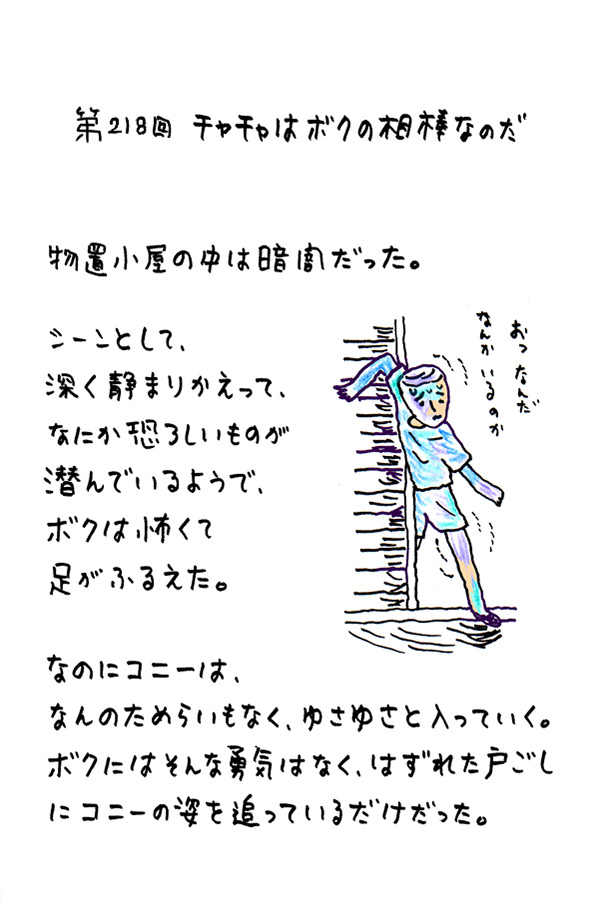 第218回 チャチャはボクの相棒なのだ
物置小屋の中は暗闇だった。
シーンとして、
深く静まりかえって、
なにか恐ろしいものが
潜んでいるようで、
ボクは怖くて
足がふるえた。
おっ なんだ
なんかいるのか
なのにコニーは、
なんのためらいもなく、ゆさゆさと入っていく。
ボクにはそんな勇気はなく、はずれた戸ごし
にコニーの姿を追っているだけだった。